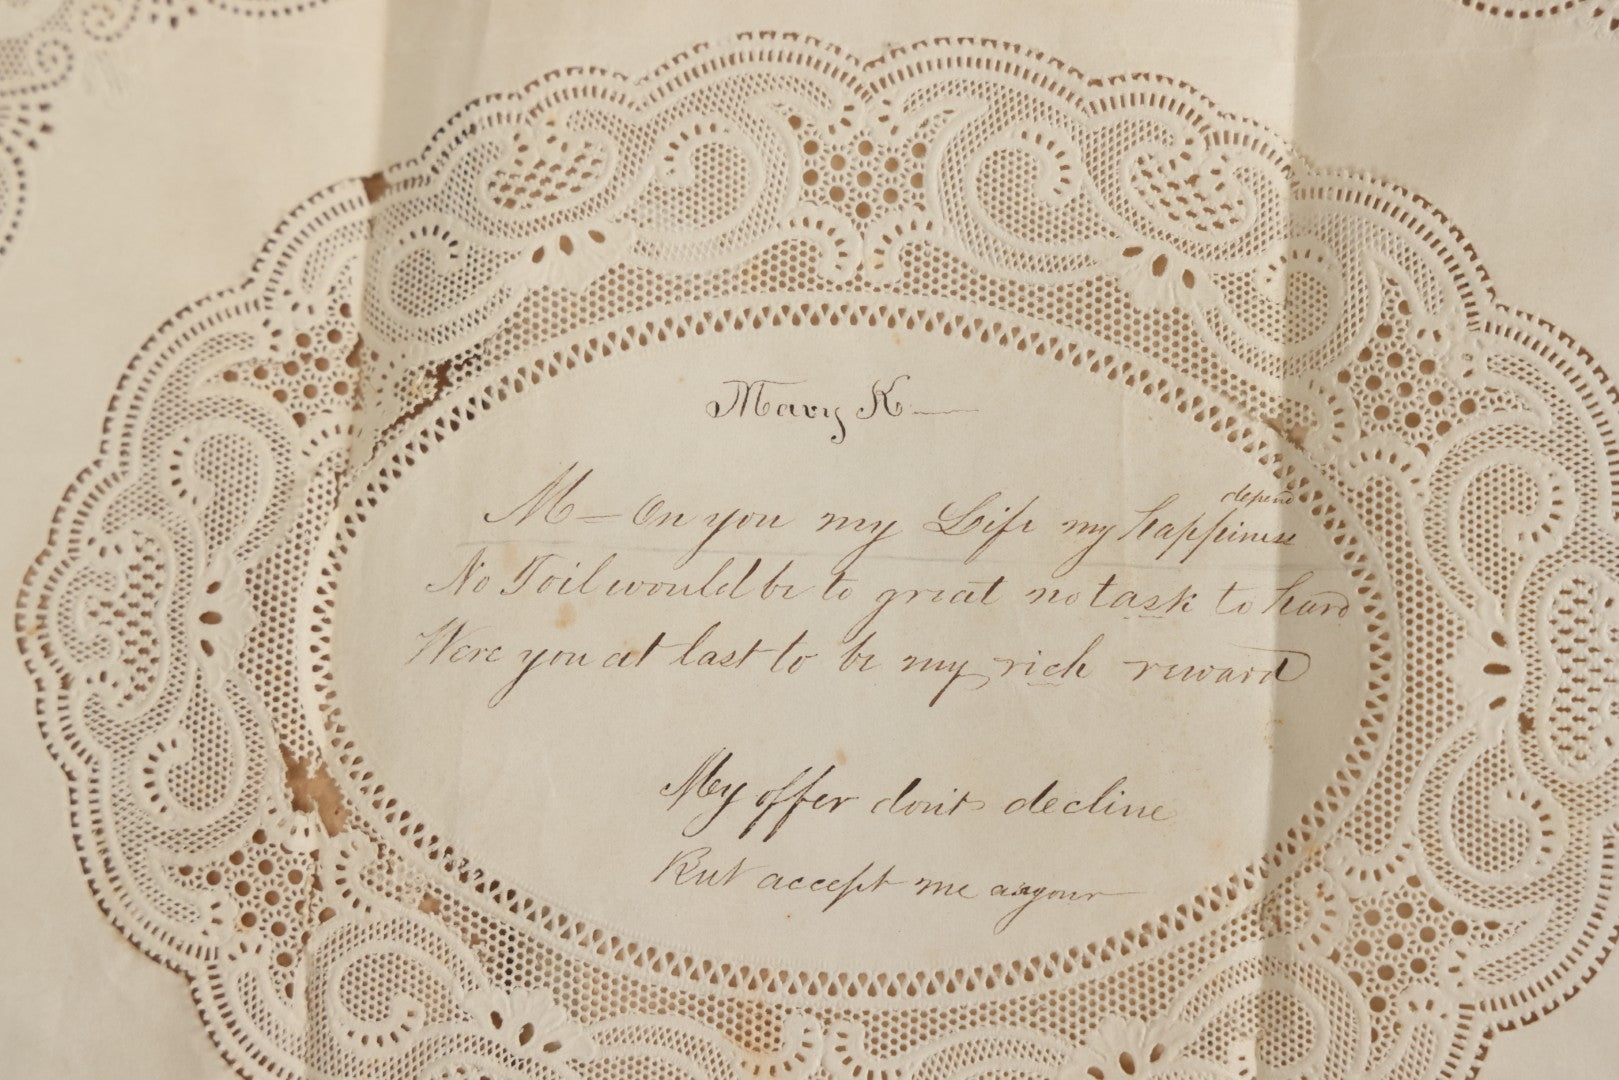 Mary K—
depend
M— On you my Life my happiness
No Toil would be to great no task to hard
Were you at last to be my rich reward
My offer don't decline
But accept me as your —